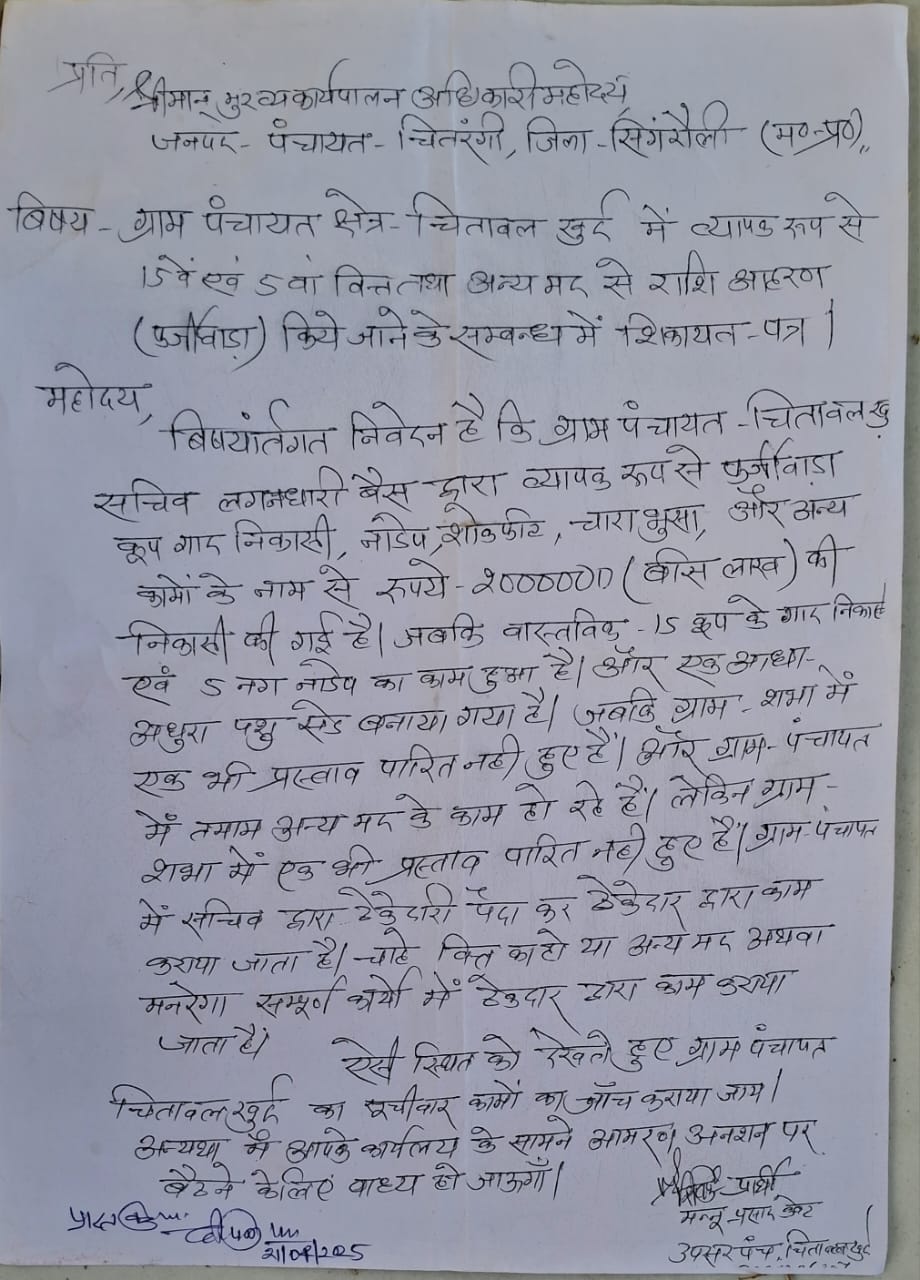 प्रति,
श्रीमान् मुख्यकार्यपालन अधिकारी महोदय,
जनपद- पंचायत- चितरंगी, जिला -सिंगरौली (म०-प्र०),,
बिषय - ग्राम पंचायत क्षेत्र - चितावल खुर्द में व्यापक रूप से
15वें एवं 5वां वित्त तथा अन्य मद से राशि आहरण
(फर्जीवाड़ा) किये जाने के सम्बन्ध में शिकायत-पत्र।
महोदय,
बिषयांर्तगत निवेदन है कि ग्राम पंचायत -चितावल खु
सचिव लगनधारी बैस द्वारा व्यापक रूप से फुर्जीवाड़ा
कूप गाद निकासी, नाडेप, शोकपीट, चारा भुसा, और अन्य
कामों के नाम से रूपये- 2000000 (बीस लाख) की
निकासी की गई है। जबकि वास्तविक -15 कूप के गाद निकासी
एवं 5 नग नाडेप का काम हुआ है। और एक आधा-
अधुरा पशु सेड बनाया गया है। जबकि ग्राम - शभा में
एक भी प्रस्ताव पारित नही हुए हैं। और ग्राम- पंचायत
में तमाम अन्य मद के काम हो रहे हैं। लेकिन ग्राम-
शभा में एक भी प्रस्ताव पारित नही हुए हैं। ग्राम-पंचायत
में सचिव द्वारा ठेकेदारी पैदा कर ठेकेदार द्वारा काम
कराया जाता है। चाहे वित्त का हो या अन्य मद अथवा
मनरेगा सम्पूर्ण कार्यो में ठेकदार द्वारा काम कराया
जाता है।
ऐसे स्थित को देखते हुए ग्राम पंचायत
चितावल खुर्द का कामों का जाँच कराया जाय।
अन्यथा मैं आपके कार्यलय के सामने आमरण अनशन पर
बैठने के लिए वाध्य हो जाऊगाँ।
प्रार्थी
मन्नू प्रसाद
उपसरपंच, चितावल खुर्द